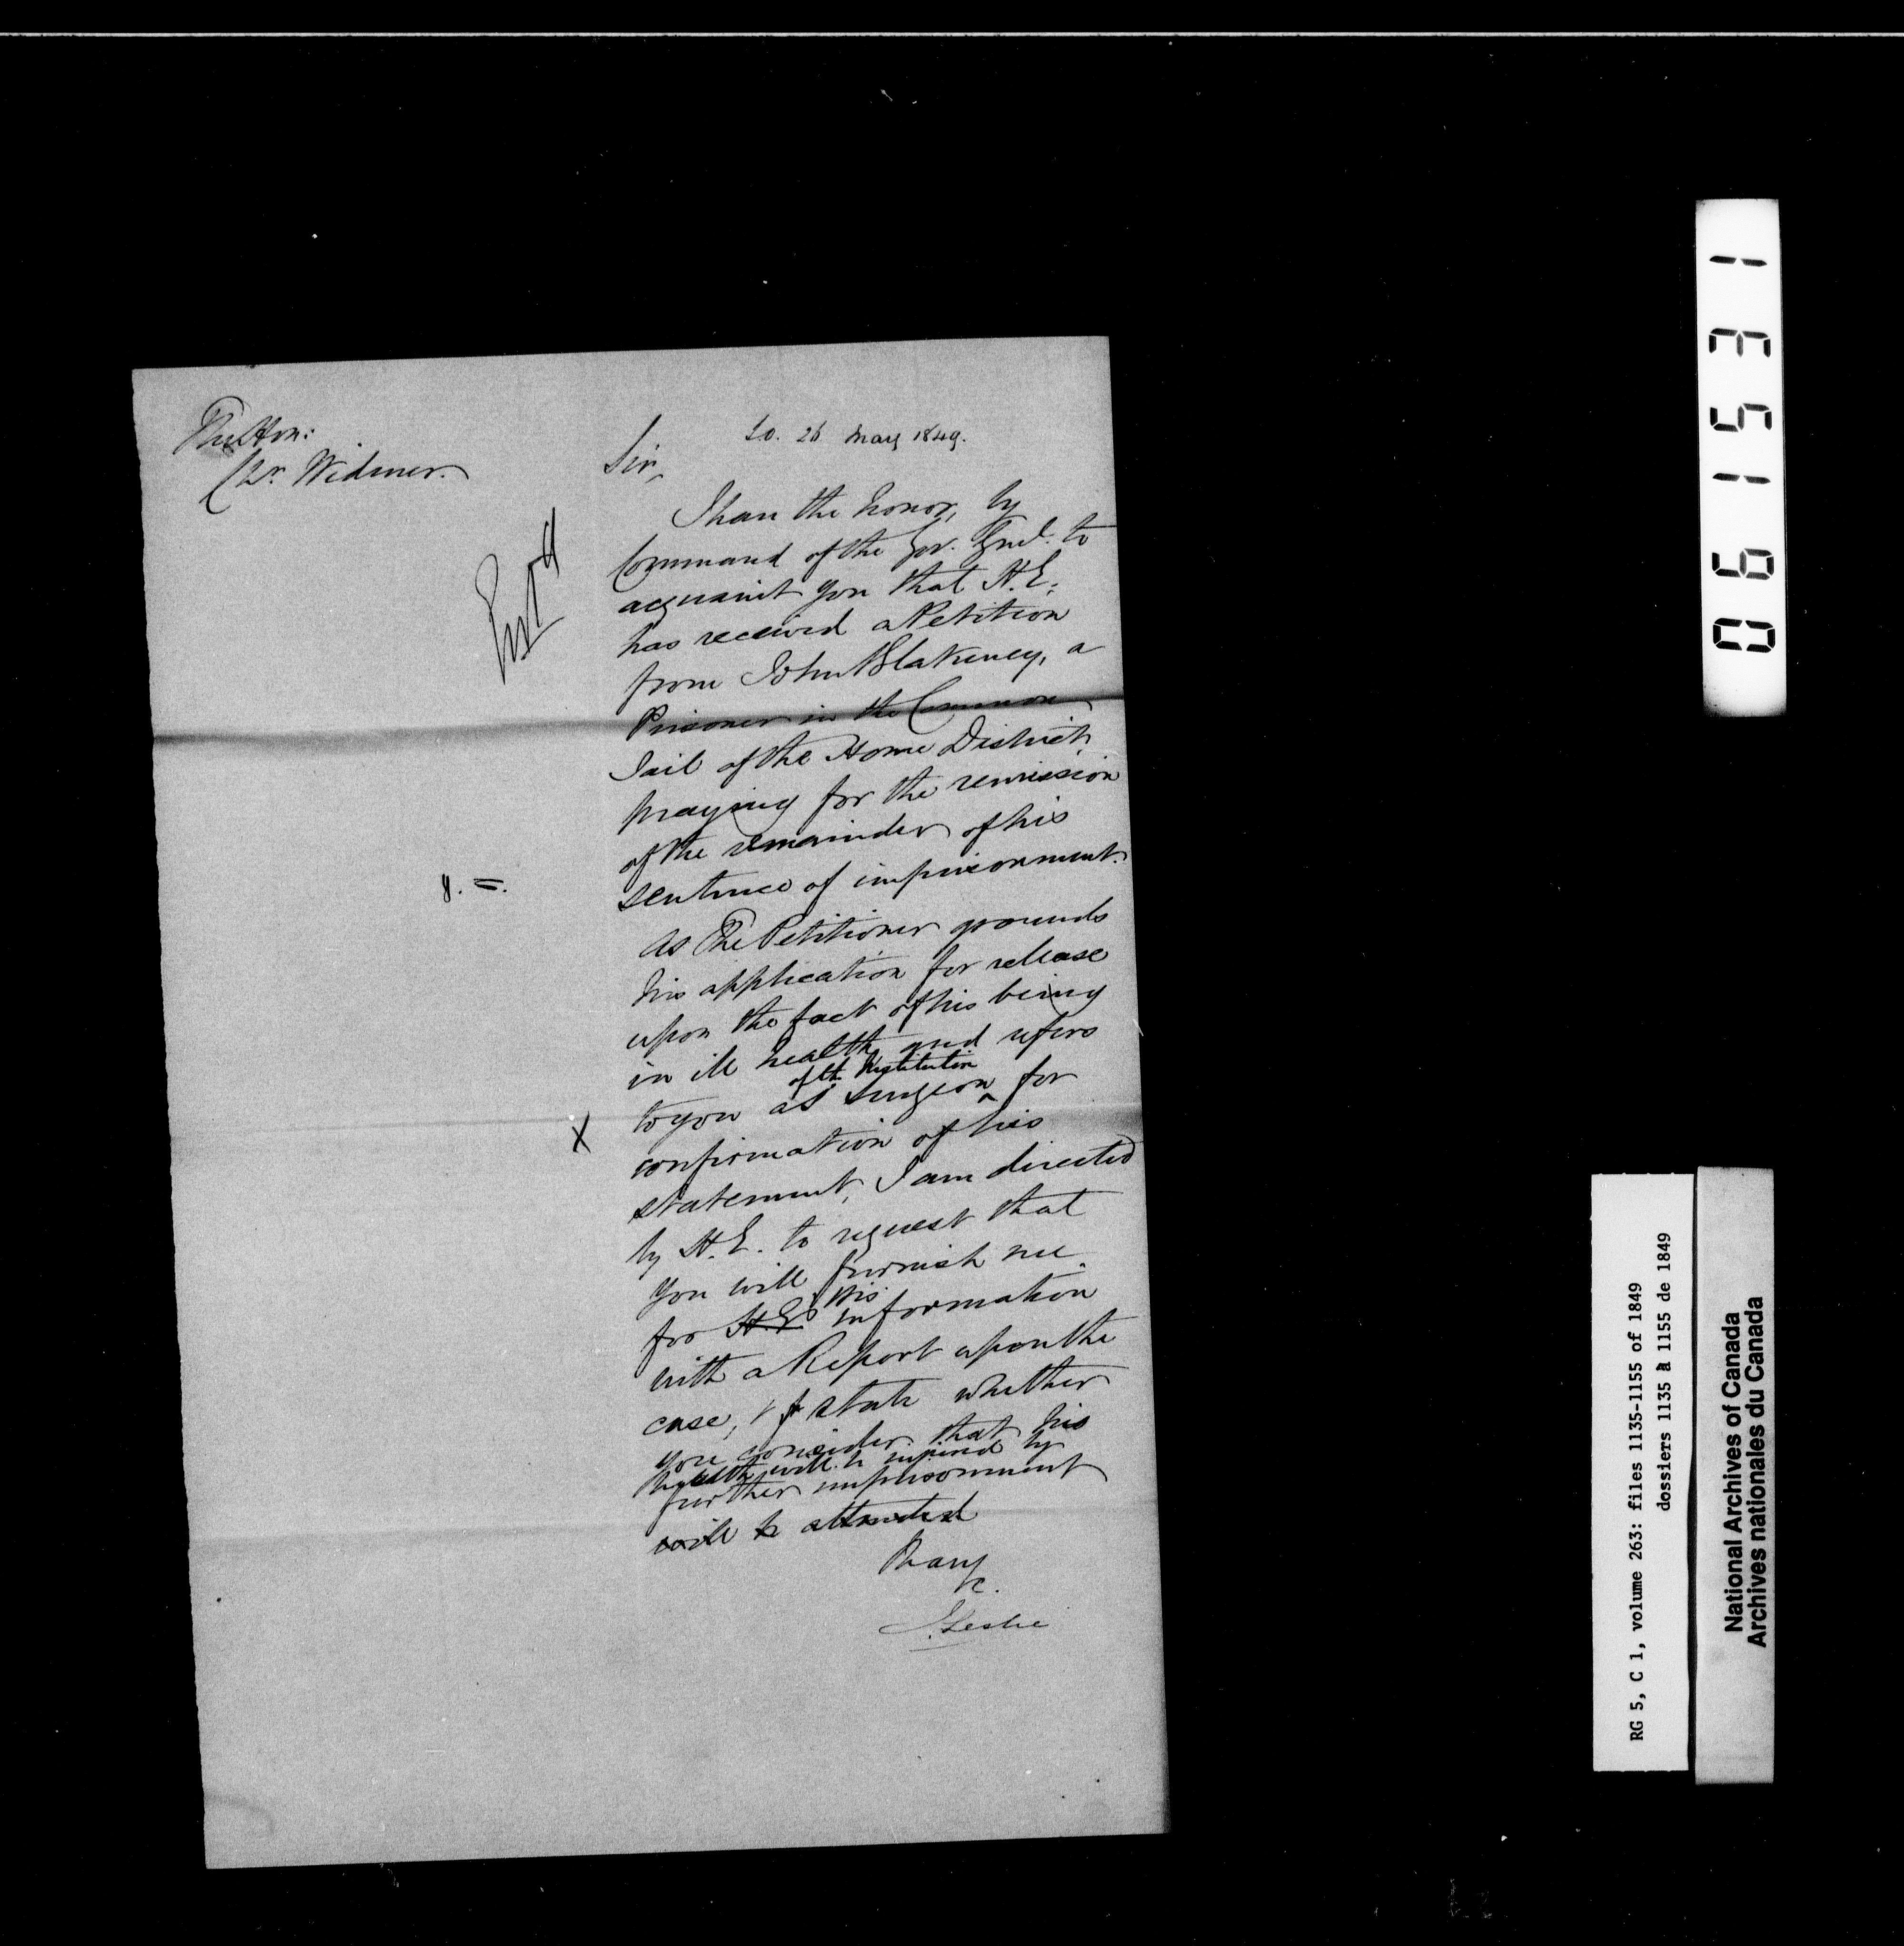 The Hon:
Chr. Widmer.
S.O. 26 May 1849.
Sir,
I have the honor, by
Command of the Gov. Genl. to
acquaint you that H.E.
has received a Petition
from John Blakeney, a
Prisoner in the Common
Jail of the Home District
praying for the remission
of the remainder of his
sentence of imprisonment.
As The Petitioner grounds
his application for release
upon the fact of his being
in ill health and refers
of the Institution
to you as Surgeon ^ for
X
confirmation of his
statement, I am directed
by H.E. to request that
you will furnish me
his
for H.E.'s information
with a Report upon the
case, & to state whether
you consider that his
health will be injured by
further imprisonment
will be attended
I have
&c.
J. Leslie
061531
RG 5, C 1, volume 263: files 1135-1155 of 1849
dossiers 1135 à 1155 de 1849
National Archives of Canada
Archives nationales du Canada